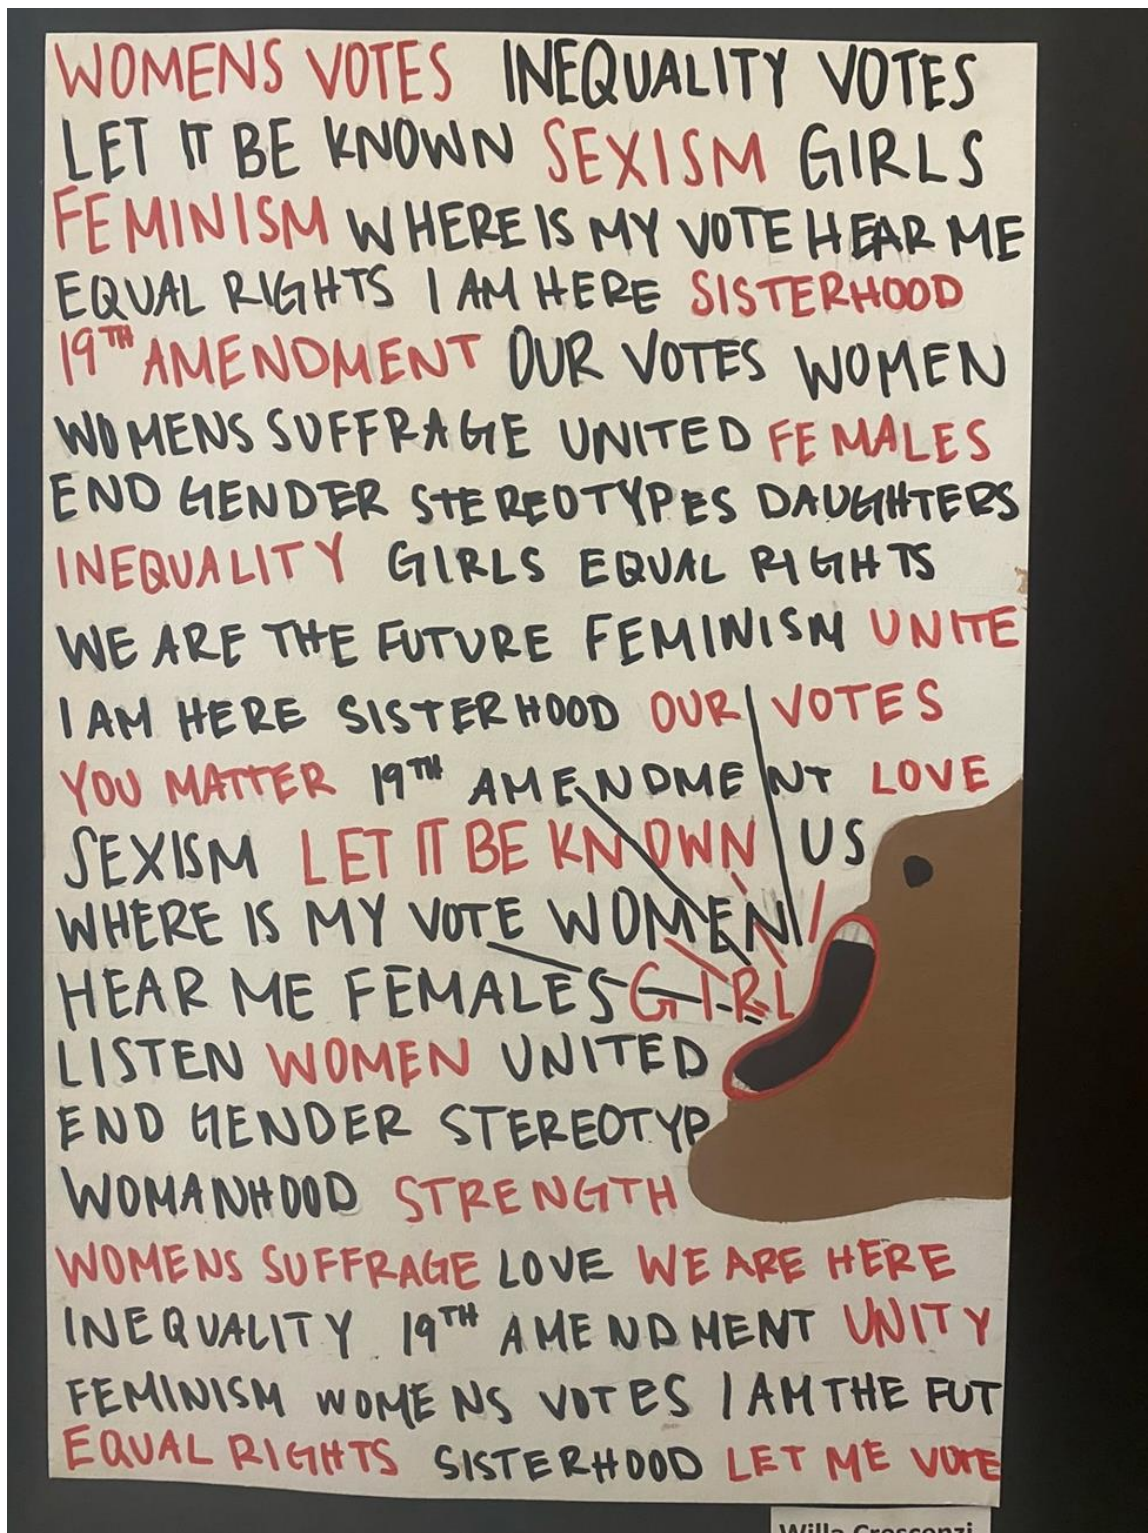 WOMENS VOTES INEQUALITY VOTES
LET IT BE KNOWN SEXISM GIRLS
FEMINISM WHERE IS MY VOTE HEAR ME
EQUAL RIGHTS I AM HERE SISTERHOOD
19TH AMENDMENT OUR VOTES WOMEN
WOMENS SUFFRAGE UNITED FEMALES
END GENDER STEREOTYPES DAUGHTERS
INEQUALITY GIRLS EQUAL RIGHTS
WE ARE THE FUTURE FEMINISM UNITE
I AM HERE SISTERHOOD OUR VOTES
YOU MATTER 19TH AMENDMENT LOVE
SEXISM LET IT BE KNOWN US
WHERE IS MY VOTE WOMEN
HEAR ME FEMALES GIRL
LISTEN WOMEN UNITED
END GENDER STEREOTYP
WOMANHOOD STRENGTH
WOMENS SUFFRAGE LOVE WE ARE HERE
INEQUALITY 19TH AMENDMENT UNITY
FEMINISM WOMENS VOTES I AM THE FUT
EQUAL RIGHTS SISTERHOOD LET ME VOTE
Willa Crescenzi